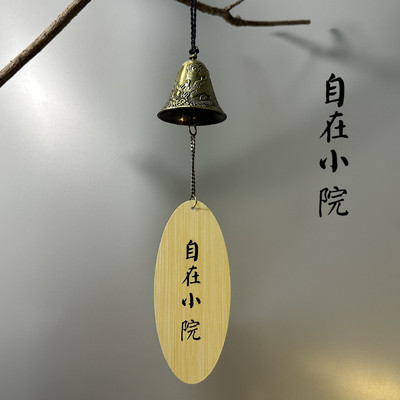 自在小院
自在小院